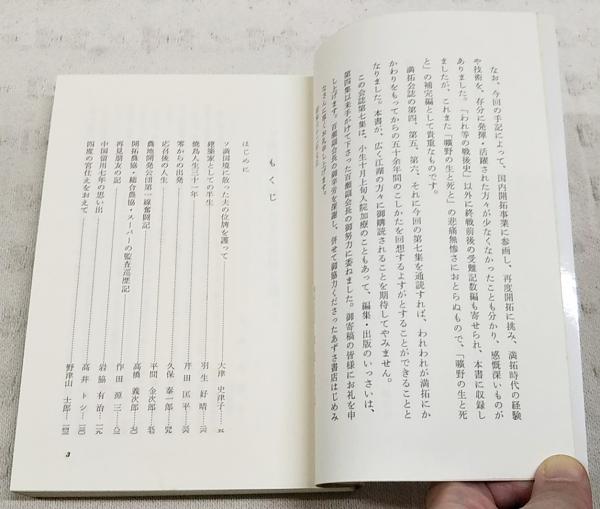 なお、今回の手記によって、国内開拓事業に参画し、再度開拓に挑み、満拓時代の経験
や技術を、存分に発揮・活躍された方々が少なくなかったことも分かり、感慨深いものが
ありました。「われ等の戦後史」以外に終戦前後の受難記数編も寄せられ、本書に収録し
ましたが、これまた「曠野の生と死」の悲痛無惨さにおとらぬもので、「曠野の生と死
と」の補完編として貴重なものです。
満拓会誌の第四、第五、第六、それに今回の第七集を通読すれば、われわれが満拓にか
かわりをもってからの五十余年間のこしかたを回想するよすがとすることができることと
なりました。本書が、広く江湖の方々に御購読されることを期待してやみません。
この会誌第七集は、小生十月上旬入院加療のこともあって、編集・出版のいっさいは、
第四集以来手がけて下さった百瀬副会長の御努力に委ねました。御寄稿の皆様にお礼を申
し上げます。百瀬副会長の御辛労を深謝し、併せて御協力くださったあずさ書店はじめみ
なさんに厚くお礼申し上げます。
もくじ
はじめに
ソ満国境に散った夫の位牌を護って 大津 史津子
建築家としての半生 羽生 好晴
焼鳥人生三十一年 芹田 匡平
零からの出発 久保 泰一郎
応召後の人生 平間 金次郎
農地開発公団第一線奮闘記 高橋 義次郎
開拓農協・総合農協・スーパーの監査巡歴記 作田 源三
再見朋友の記 岩脇 有治
中国留用七年の思い出 高井 トシ
四度の宮仕えをおえて 野津山 士郎
3